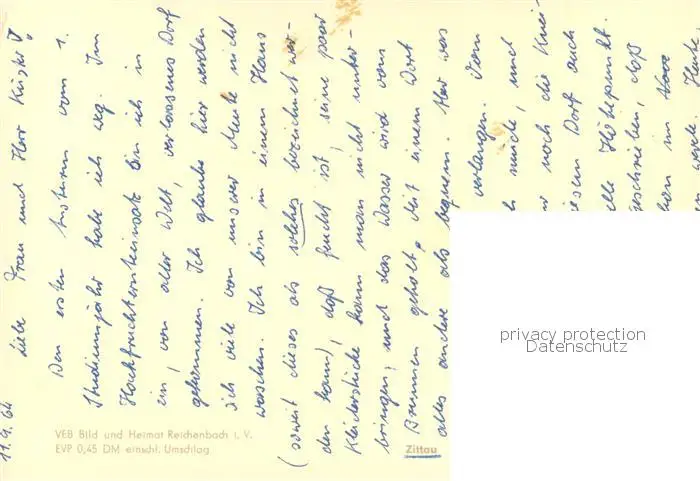 11.9.64
Liebe Frau und Herr
Den ersten vom 1.
Studienjahr habe ich weg. Im
Hackfruchternteeinsatz bin ich in
ein, von aller Welt, verlassenes Dorf
gekommen. Ich glaube hier werden
sich viele von unserer Meute nicht
waschen. Ich bin in einem Haus
(soweit dieses als solches bezeichnet wer-
den kann), daß feucht ist, seine paar
Kleiderstücke kann man nicht unter-
bringen, und das Wasser wird vom
Brunnen geholt. Mit einem Wort
alles andere als bequem. Wer was
verlangen. Dem
müde, und
nur noch die Knei-
diesem Dorf auch
Höhepunkt.
geschrieben, daß
schon im
werde. Heute,
VEB Bild und Heimat Reichenbach i. V.
EVP 0,45 DM einschl. Umschlag
Zittau
privacy protection
Datenschutz